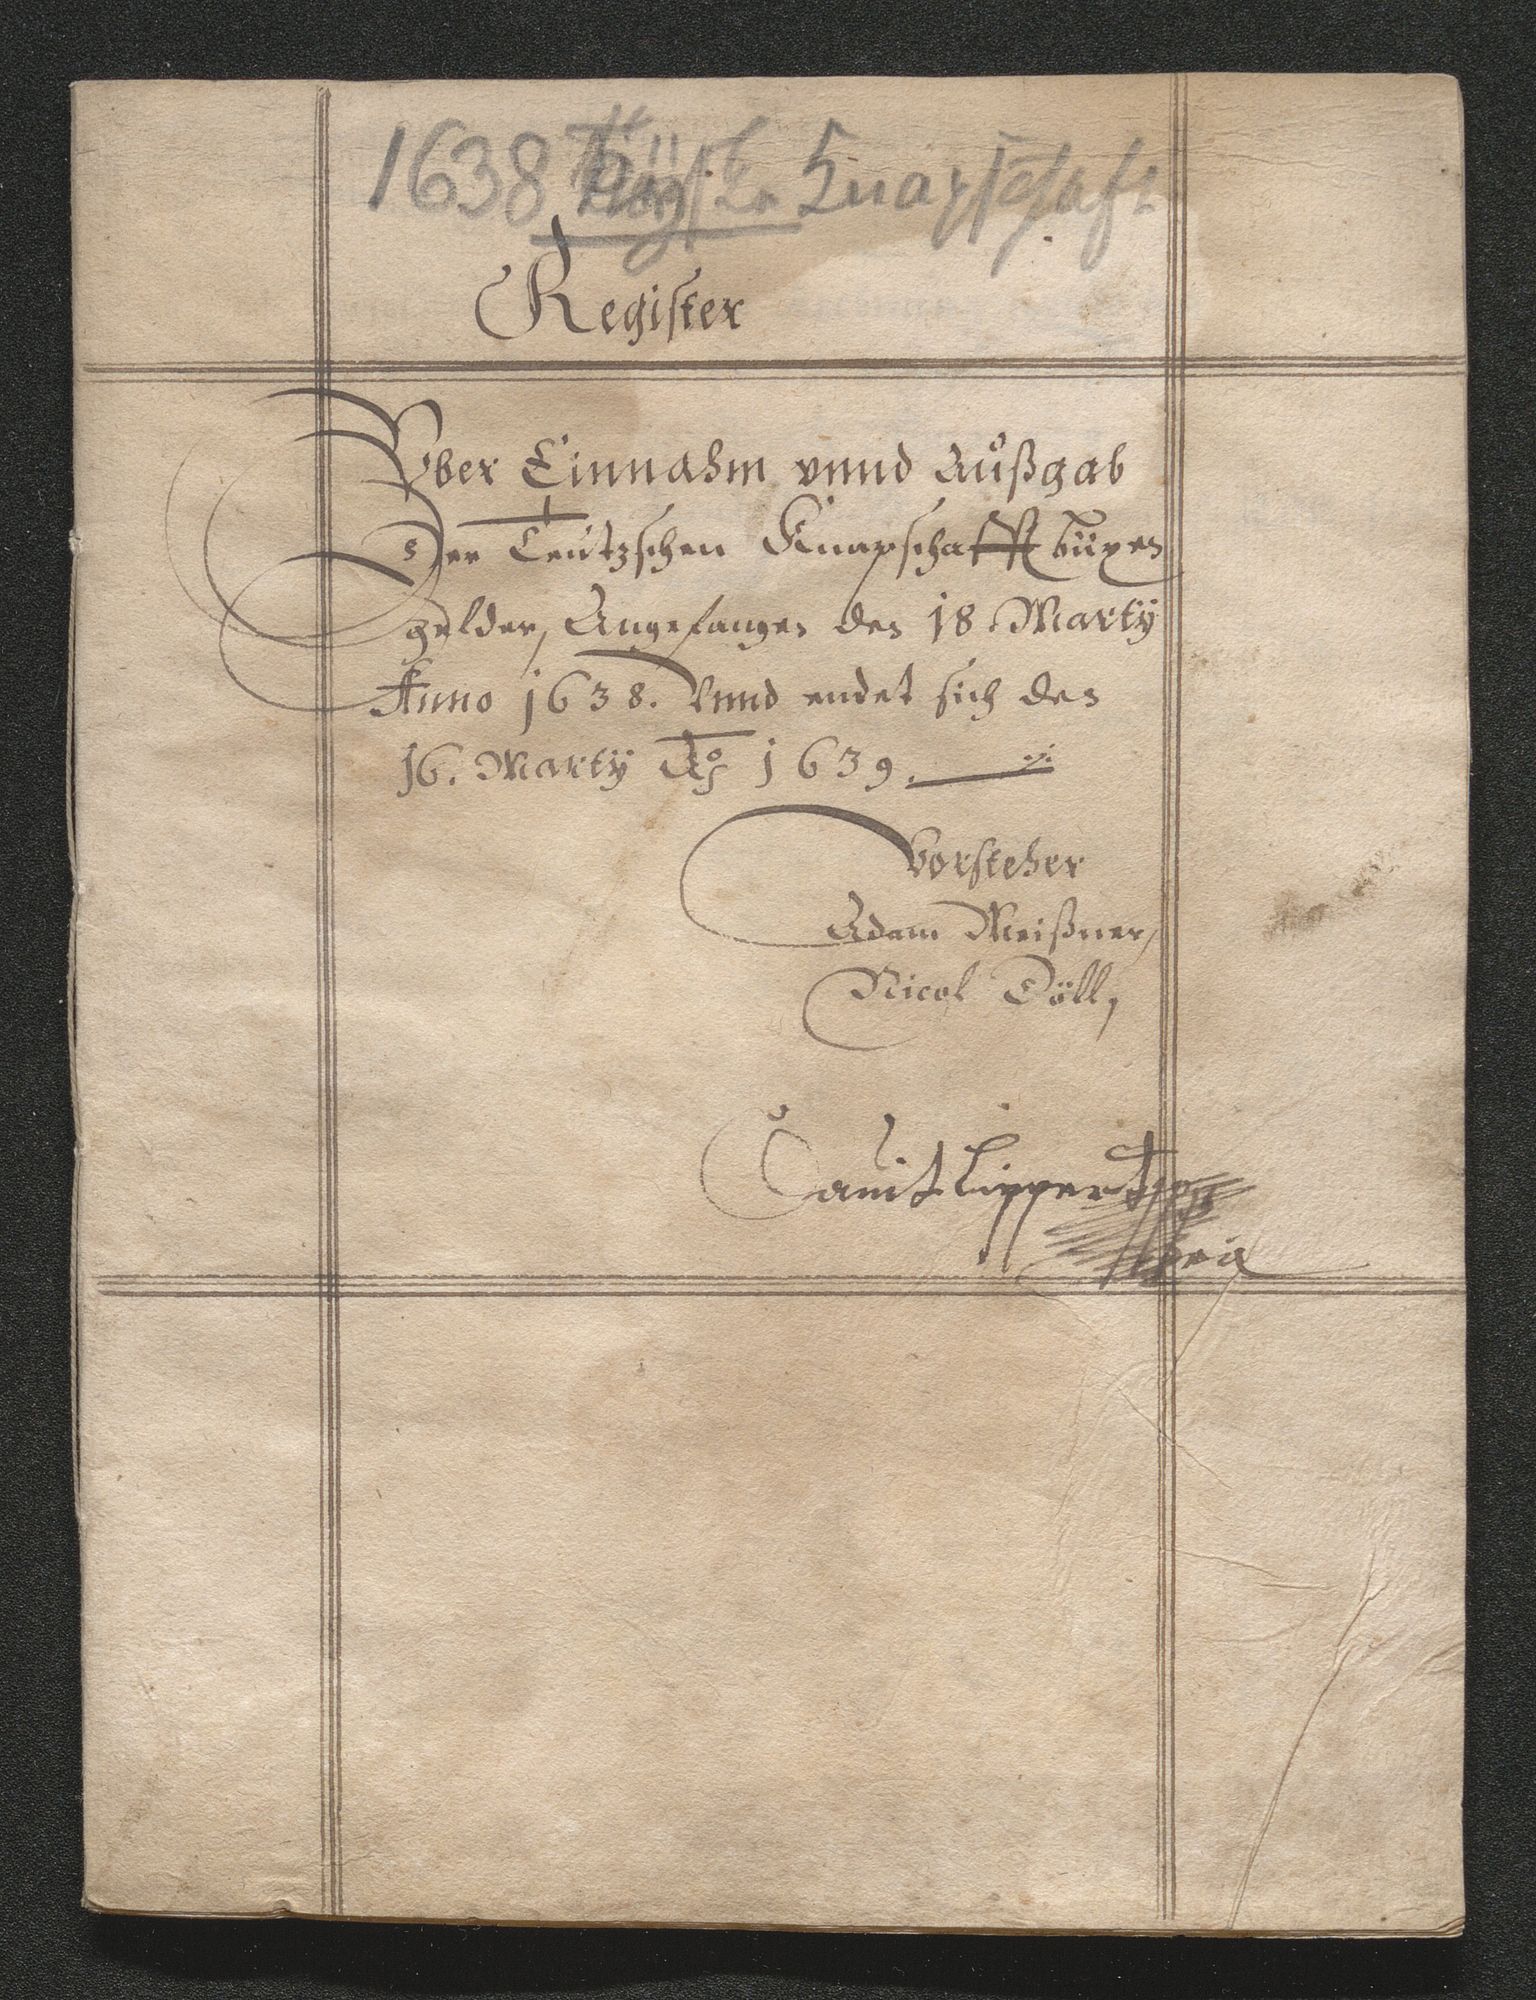 1638 Tÿske Knapschaft
Register
Vber Einnahm vnnd Außgab
Der Teutzschen Knapschafft büxen
gelder, Angefangen den 18. Martÿ
Anno 1638. Vnnd endet sich den
16. Martÿ Aō 1639.
Vorsteher
Adam Meißner,
Nicol Döll,
Dauit Lippert